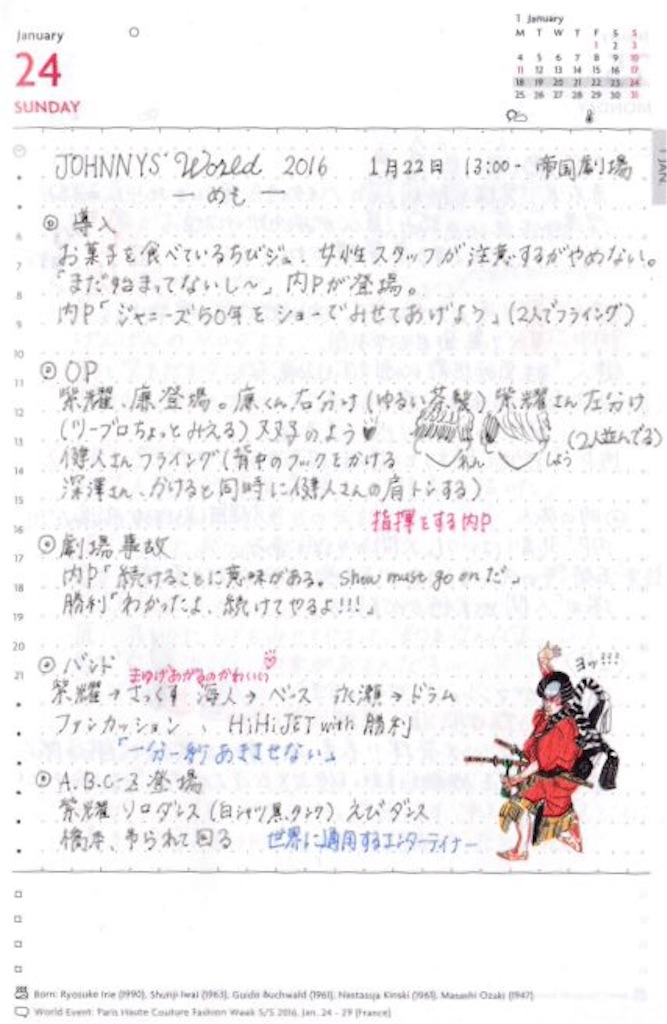 January
24
SUNDAY
1 January
M T W T F S S
1 2 3
4 5 6 7 8 9 10
11 12 13 14 15 16 17
18 19 20 21 22 23 24
25 26 27 28 29 30 31
1 JAN
JOHNNYS' World 2016 1月22日 13:00- 帝国劇場
— めも —
◎ 導入
お菓子を食べているちびジュ、女性スタッフが注意するがやめない。
「まだ始まってないし〜」内Pが登場。
内P「ジャニーズ50年をショーでみせてあげよう」(2人でフライング)
◎ OP
紫耀、廉登場。廉くん右分け(ゆるい茶髪) 紫耀さん左分け
(ツーブロちょっとみえる)双子のよう
れん しょう (2人並んでる)
健人さんフライング(背中のフックをかける
深澤さん、かけると同時に健人さんの肩トンする)
指揮をする内P
◎ 劇場事故
内P「続けることに意味がある。Show must go onだ」
勝利「わかったよ、続けてやるよ!!!」
◎ バンド
まゆげあがるのかわいい
紫耀→さっくす 海人→ベース 永瀬→ドラム
ファンカッション、HiHiJET with 勝利
「一分一秒あきさせない」
◎ A.B.C-Z 登場
紫耀 ソロダンス(白シャツ黒タンク) えびダンス
橋本、吊られて回る 世界に通用するエンターテイナー
ヨッ!!!
7
8
9
10
11
12
13
14
15
16
17
18
19
20
21
Born: Ryosuke Irie (1990), Shunji Iwai (1963), Guido Buchwald (1961), Nastassja Kinski (1961), Masashi Ozaki (1947)
World Event: Paris Haute Couture Fashion Week S/S 2016, Jan. 24 - 29 (France)